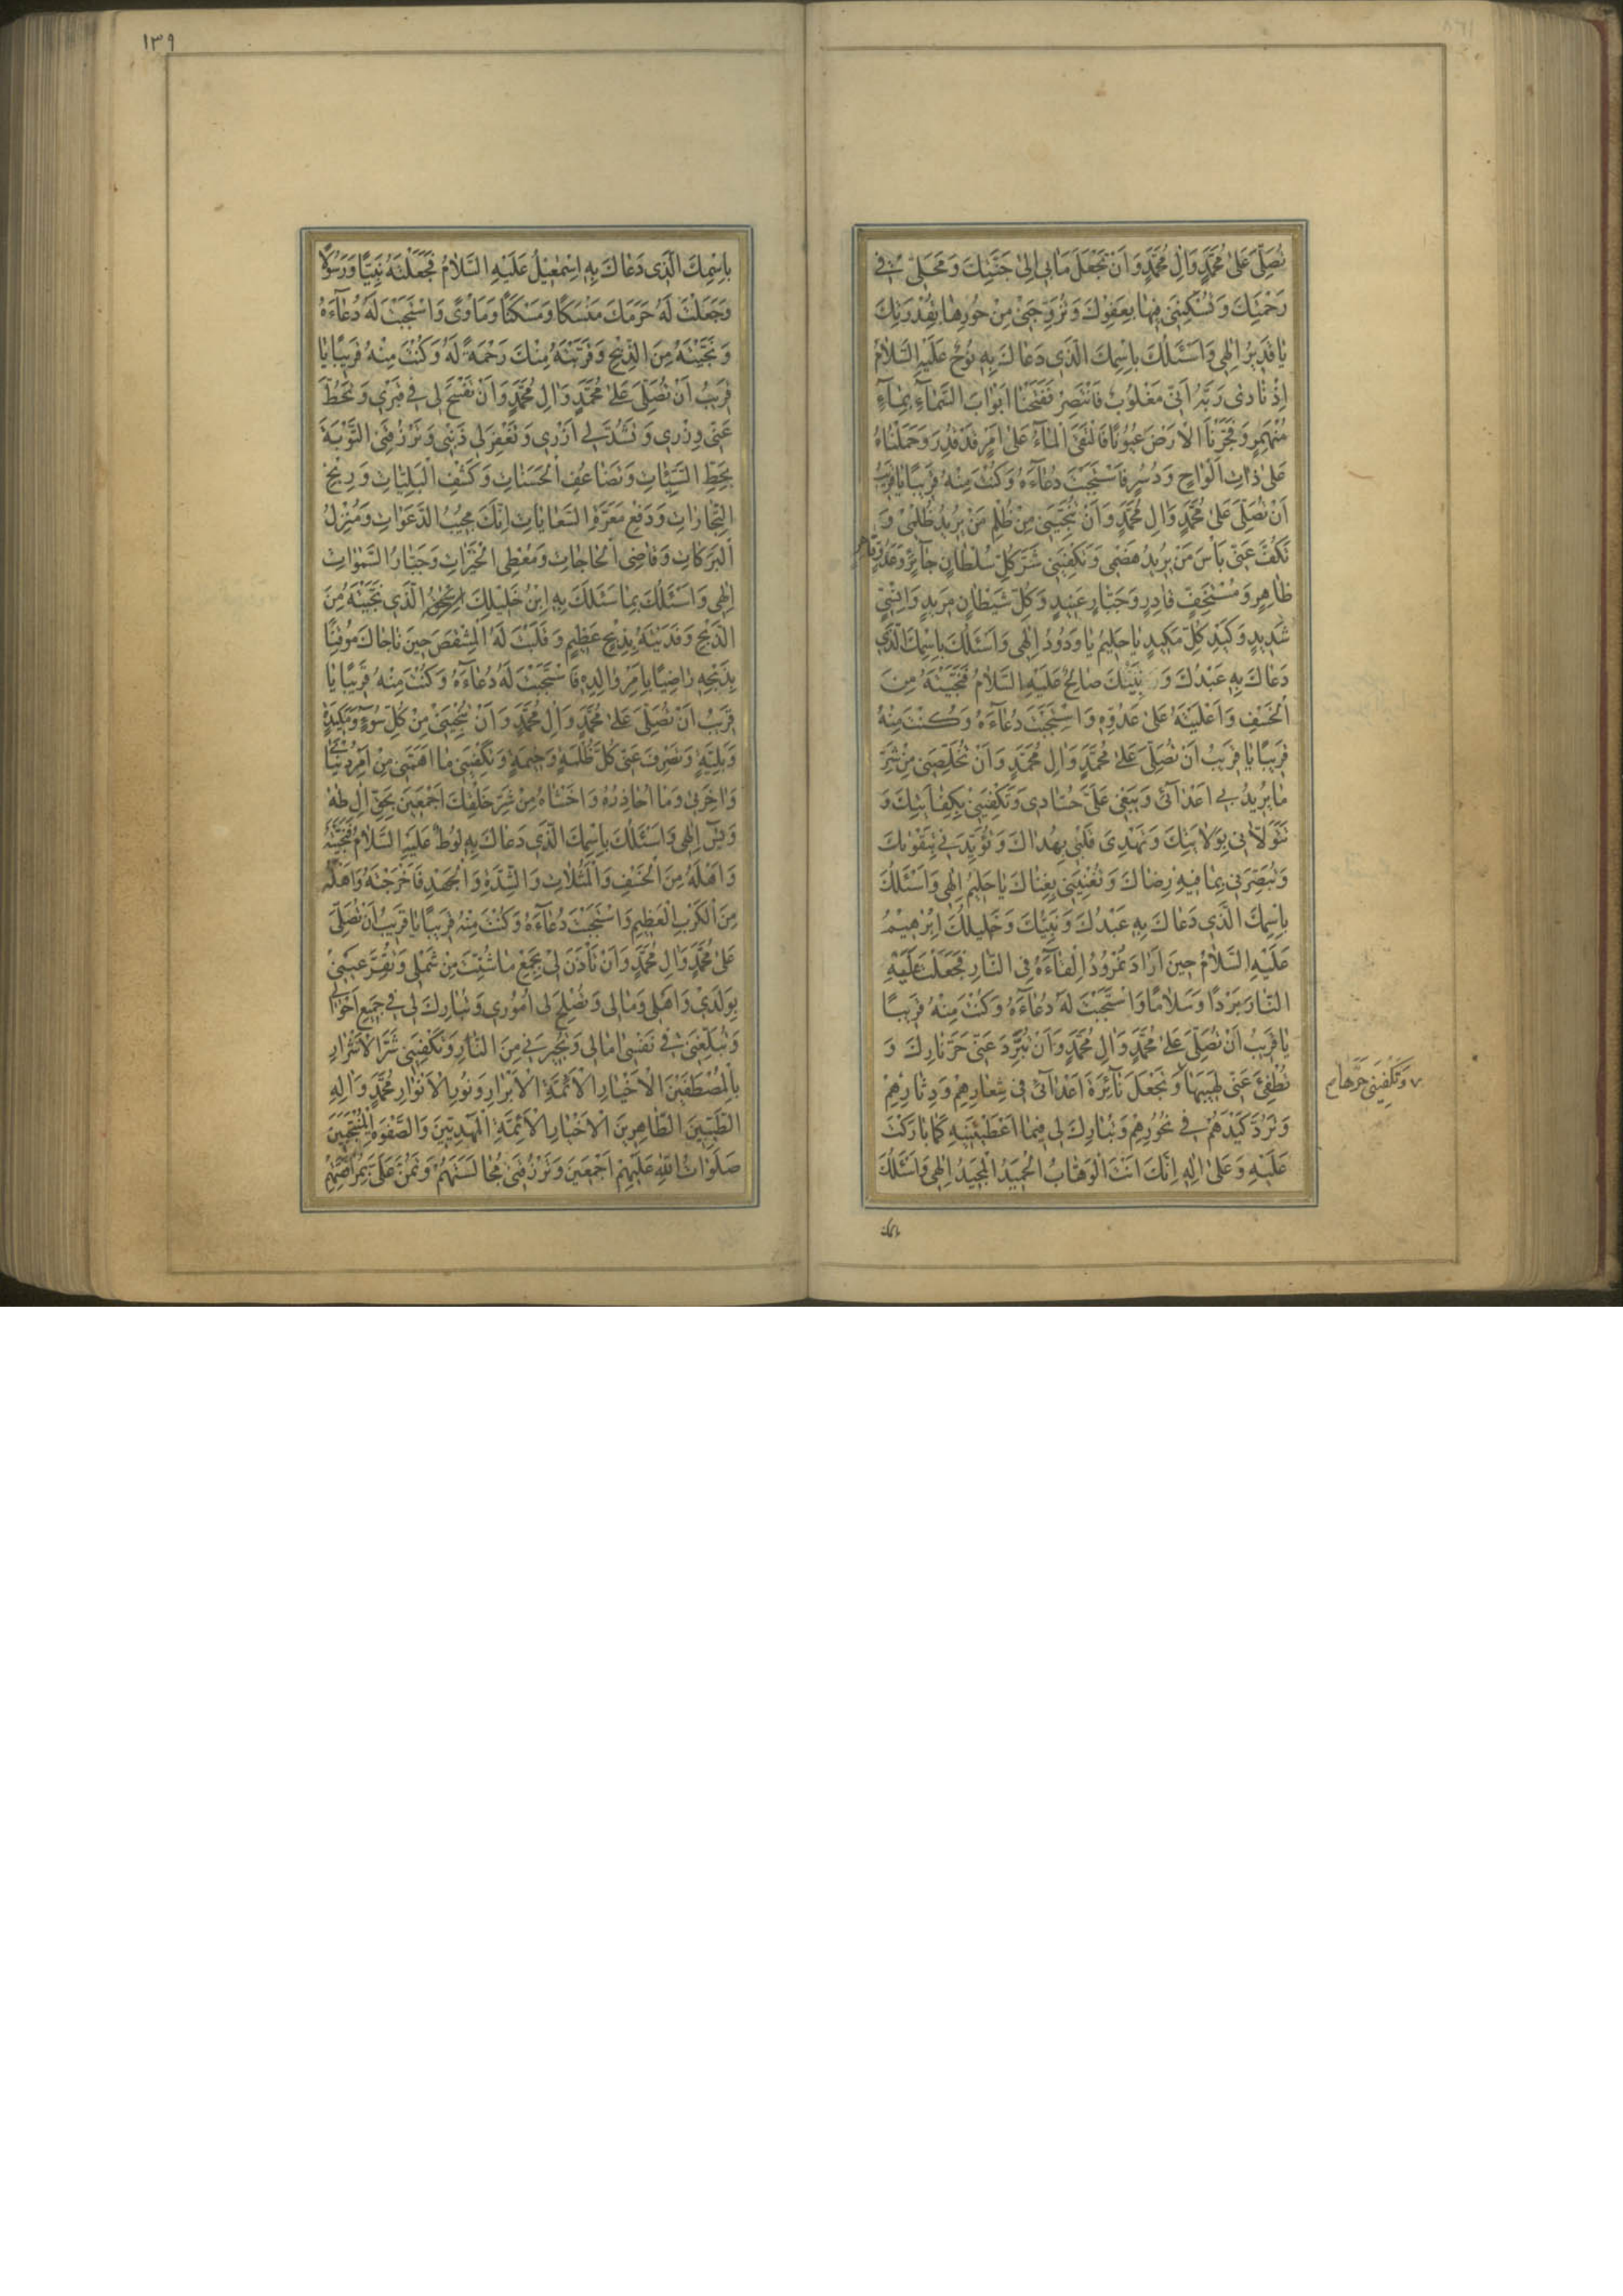 تُصَلِّيَ عَلىٰ مُحَمَّدٍ وَاٰلِ مُحَمَّدٍ وَاَنْ تَجْعَلَ مَاٰبى اِلىٰ جَنَّتِكَ وَمَحَلّى فى
رَحْمَتِكَ وَتُسْكِنَنى فيهٰا بِعَفْوِكَ وَتُزَوِّجَنى مِنْ حُورِهٰا بِقُدْرَتِكَ
يٰا قَديرُ اِلٰهى وَاَسْئَلُكَ بِاسْمِكَ الَّذى دَعٰاكَ بِهِ نُوحٌ عَلَيْهِ السَّلٰامُ
اِذْ نٰادىٰ رَبَّهُ اَنّى مَغْلُوبٌ فَانْتَصِرْ فَفَتَحْنٰا اَبْوٰابَ السَّمٰاءِ بِمٰاءٍ
مُنْهَمِرٍ وَفَجَّرْنَا الْاَرْضَ عُيُونًا فَالْتَقَى الْمٰاءُ عَلىٰ اَمْرٍ قَدْ قُدِرَ وَحَمَلْنٰاهُ
عَلىٰ ذٰاتِ اَلْوٰاحٍ وَدُسُرٍ فَاسْتَجَبْتَ دُعٰاءَهُ وَكُنْتَ مِنْهُ قَريبًا يٰا قَريبُ
اَنْ تُصَلِّيَ عَلىٰ مُحَمَّدٍ وَاٰلِ مُحَمَّدٍ وَاَنْ تُنَجِّيَنى مِنْ ظُلْمِ مَنْ يُريدُ ظُلْمى وَ
تَكُفَّ عَنّى بَأْسَ مَنْ يُريدُ هَضْمى وَتَكْفِيَنى شَرَّ كُلِّ سُلْطٰانٍ جٰائِرٍ وَعَدُوٍّ قٰاهِرٍ
ظٰاهِرٍ وَمُسْتَخِفٍّ قٰادِرٍ وَجَبّٰارٍ عَنيدٍ وَكُلِّ شَيْطٰانٍ مَريدٍ وَاِنْسِيٍّ
شَديدٍ وَكَيْدِ كُلِّ مَكيدٍ يٰا حَليمُ يٰا وَدُودُ اِلٰهى وَاَسْئَلُكَ بِاسْمِكَ الَّذى
دَعٰاكَ بِهِ عَبْدُكَ وَ نَبِيُّكَ صٰالِحٌ عَلَيْهِ السَّلٰامُ فَنَجَّيْتَهُ مِنَ
الْخَسْفِ وَاَعْلَيْتَهُ عَلىٰ عَدُوِّهِ وَاسْتَجَبْتَ دُعٰاءَهُ وَكُنْتَ مِنْهُ
قَريبًا يٰا قَريبُ اَنْ تُصَلِّيَ عَلىٰ مُحَمَّدٍ وَاٰلِ مُحَمَّدٍ وَاَنْ تُخَلِّصَنى مِنْ شَرِّ
مٰا يُريدُ بى اَعْدٰائى وَيَبْغى عَلَيَّ حُسّٰادى وَتَكْفِيَنى بِكِفٰايَتِكَ وَ
تَتَوَلّٰانى بِوِلٰايَتِكَ وَتَهْدِيَ قَلْبى بِهُدٰاكَ وَتُؤَيِّدَنى بِتَقْوٰيكَ
وَتُبَصِّرَنى بِمٰا فيهِ رِضٰاكَ وَتُغْنِيَنى بِغِنٰاكَ يٰا حَليمُ اِلٰهى وَاَسْئَلُكَ
بِاسْمِكَ الَّذى دَعٰاكَ بِهِ عَبْدُكَ وَنَبِيُّكَ وَخَليلُكَ اِبْرٰهيمُ
عَلَيْهِ السَّلٰامُ حينَ اَرٰادَ نَمْرُودُ اِلْقٰاءَهُ فِى النّٰارِ فَجَعَلْتَ عَلَيْهِ
النّٰارَ بَرْدًا وَسَلٰامًا وَاسْتَجَبْتَ لَهُ دُعٰاءَهُ وَكُنْتَ مِنْهُ قَريبًا
يٰا قَريبُ اَنْ تُصَلِّيَ عَلىٰ مُحَمَّدٍ وَاٰلِ مُحَمَّدٍ وَاَنْ تُبَرِّدَ عَنّى حَرَّ نٰارِكَ وَ
تُطْفِئَ عَنّى لَهيبَهٰا وَتَجْعَلَ نٰائِرَةَ اَعْدٰائى فى شِعٰارِهِمْ وَدِثٰارِهِمْ
وَتَكْفِيَنى حَرَّهٰا
وَتَرُدَّ كَيْدَهُمْ فى نُحُورِهِمْ وَتُبٰارِكَ لى فيمٰا اَعْطَيْتَنيهِ كَمٰا بٰارَكْتَ
عَلَيْهِ وَعَلىٰ اٰلِهِ اِنَّكَ اَنْتَ الْوَهّٰابُ الْحَميدُ الْمَجيدُ اِلٰهى وَاَسْئَلُكَ
باسمك
١٣٩
بِاسْمِكَ الَّذى دَعٰاكَ بِهِ اِسْمٰعيلُ عَلَيْهِ السَّلٰامُ فَجَعَلْتَهُ نَبِيًّا وَرَسُولًا
وَجَعَلْتَ لَهُ حَرَمَكَ مَنْسَكًا وَمَسْكَنًا وَمَاْوًى وَاسْتَجَبْتَ لَهُ دُعٰاءَهُ
وَنَجَّيْتَهُ مِنَ الذَّبْحِ وَقَرَّبْتَهُ مِنْكَ رَحْمَةً لَهُ وَكُنْتَ مِنْهُ قَريبًا يٰا
قَريبُ اَنْ تُصَلِّيَ عَلىٰ مُحَمَّدٍ وَاٰلِ مُحَمَّدٍ وَاَنْ تَفْسَحَ لى فى قَبْرى وَتَحُطَّ
عَنّى وِزْرى وَتَشُدَّ لى اَزْرى وَتَغْفِرَ لى ذَنْبى وَتَرْزُقَنِى التَّوْبَةَ
بِحَطِّ السَّيِّئٰاتِ وَتَضٰاعُفِ الْحَسَنٰاتِ وَكَشْفِ الْبَلِيّٰاتِ وَرِبْحِ
التِّجٰارٰاتِ وَدَفْعِ مَعَرَّةِ السِّعٰايٰاتِ اِنَّكَ مُجيبُ الدَّعَوٰاتِ وَمُنْزِلُ
الْبَرَكٰاتِ وَقٰاضِى الْحٰاجٰاتِ وَمُعْطِى الْخَيْرٰاتِ وَجَبّٰارُ السَّمٰوٰاتِ
اِلٰهى وَاَسْئَلُكَ بِمٰا سَئَلَكَ بِهِ ابْنُ خَليلِكَ الَّذى نَجَّيْتَهُ مِنَ
الذَّبْحِ وَفَدَيْتَهُ بِذِبْحٍ عَظيمٍ وَقَلَبْتَ لَهُ الْمِشْقَصَ حينَ نٰاجٰاكَ مُوقِنًا
بِذَبْحِهِ رٰاضِيًا بِاَمْرِ وٰالِدِهِ فَاسْتَجَبْتَ لَهُ دُعٰاءَهُ وَكُنْتَ مِنْهُ قَريبًا يٰا
قَريبُ اَنْ تُصَلِّيَ عَلىٰ مُحَمَّدٍ وَاٰلِ مُحَمَّدٍ وَاَنْ تُنْجِيَنى مِنْ كُلِّ سُوءٍ وَمَكيدَةٍ
وَبَلِيَّةٍ وَتَصْرِفَ عَنّى كُلَّ ظُلْمَةٍ وَخيمَةٍ وَتَكْفِيَنى مٰا اَهَمَّنى مِنْ اَمْرِ دُنْيٰاىَ
وَاٰخِرَتى وَمٰا اُحٰاذِرُهُ وَاَخْشٰاهُ مِنْ شَرِّ خَلْقِكَ اَجْمَعينَ بِحَقِّ اٰلِ طٰهٰ
وَيٰسٓ اِلٰهى وَاَسْئَلُكَ بِاسْمِكَ الَّذى دَعٰاكَ بِهِ لُوطٌ عَلَيْهِ السَّلٰامُ فَنَجَّيْتَهُ
وَاَهْلَهُ مِنَ الْخَسْفِ وَالْمَثُلٰاتِ وَالشِّدَّةِ وَالْجَهْدِ فَاَخْرَجْتَهُ وَاَهْلَهُ
مِنَ الْكَرْبِ الْعَظيمِ وَاسْتَجَبْتَ دُعٰاءَهُ وَكُنْتَ مِنْهُ قَريبًا يٰا قَريبُ اَنْ تُصَلِّيَ
عَلىٰ مُحَمَّدٍ وَاٰلِ مُحَمَّدٍ وَاَنْ تَأْذَنَ لى بِجَمْعِ مٰا شُتِّتَ مِنْ شَمْلى وَتُقِرَّ عَيْنى
بِوَلَدى وَاَهْلى وَمٰالى وَتُصْلِحَ لى اُمُورى وَتُبٰارِكَ لى فى جَميعِ اَحْوٰالى
وَتُبَلِّغَنى فى نَفْسى اٰمٰالى وَتُجيرَنى مِنَ النّٰارِ وَتَكْفِيَنى شَرَّ الْاَشْرٰارِ
بِالْمُصْطَفَيْنَ الْاَخْيٰارِ الْاَئِمَّةِ الْاَبْرٰارِ وَنُورِ الْاَنْوٰارِ مُحَمَّدٍ وَاٰلِهِ
الطَّيِّبينَ الطّٰاهِرينَ الْاَخْيٰارِ الْاَئِمَّةِ الْمَهْدِيّينَ وَالصَّفْوَةِ الْمُنْتَجَبينَ
صَلَوٰاتُ اللّٰهِ عَلَيْهِمْ اَجْمَعينَ وَتَرْزُقَنى مُجٰالَسَتَهُمْ وَتَمُنَّ عَلَيَّ بِمُرٰافَقَتِهِمْ